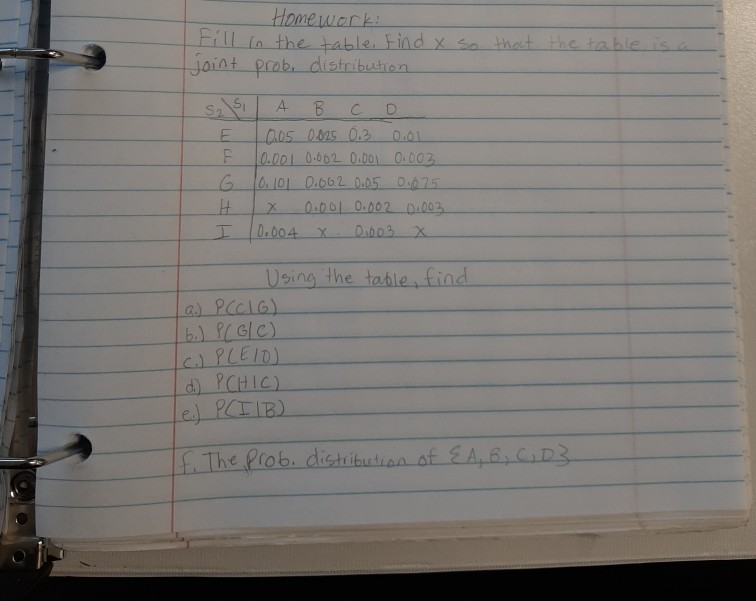 Homework:
Fill in the table. Find x so that the table is a
joint prob. distribution
S₂\S₁ A B C D
E 0.05 0.025 0.3 0.01
F 0.001 0.002 0.001 0.003
G 0.101 0.062 0.05 0.075
H x 0.001 0.002 0.003
I 0.004 x 0.003 x
Using the table, find
a.) P(C|G)
b.) P(G|C)
c.) P(E|D)
d.) P(H|C)
e.) P(I|B)
f. The prob. distribution of {A, B, C, D}